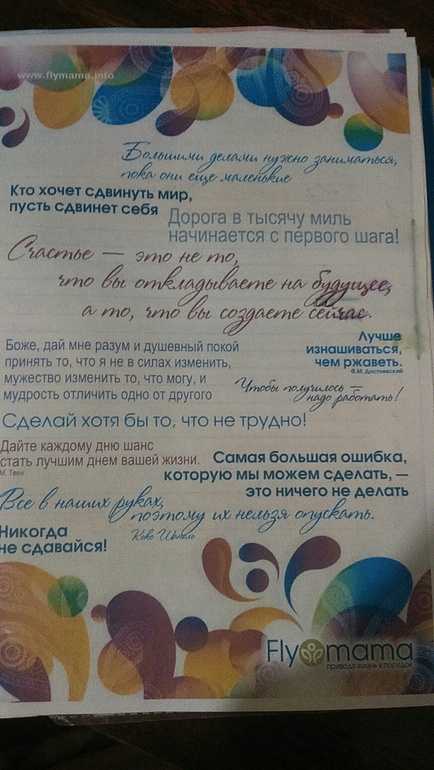 www.flymama.info
Большими делами нужно заниматься,
пока они еще маленькие
Кто хочет сдвинуть мир,
пусть сдвинет себя
Дорога в тысячу миль
начинается с первого шага!
Счастье — это не то,
что вы откладываете на будущее,
а то, что вы создаете сейчас.
Боже, дай мне разум и душевный покой
принять то, что я не в силах изменить,
мужество изменить то, что могу, и
мудрость отличить одно от другого
Лучше
изнашиваться,
чем ржаветь.
Ф.М. Достоевский
Чтобы получилось —
надо работать!
Сделай хотя бы то, что не трудно!
Дайте каждому дню шанс
стать лучшим днем вашей жизни.
М. Твен
Самая большая ошибка,
которую мы можем сделать, —
это ничего не делать
Все в наших руках,
поэтому их нельзя опускать.
Коко Шанель
Никогда
не сдавайся!
Fly mama
приводя жизнь в порядок